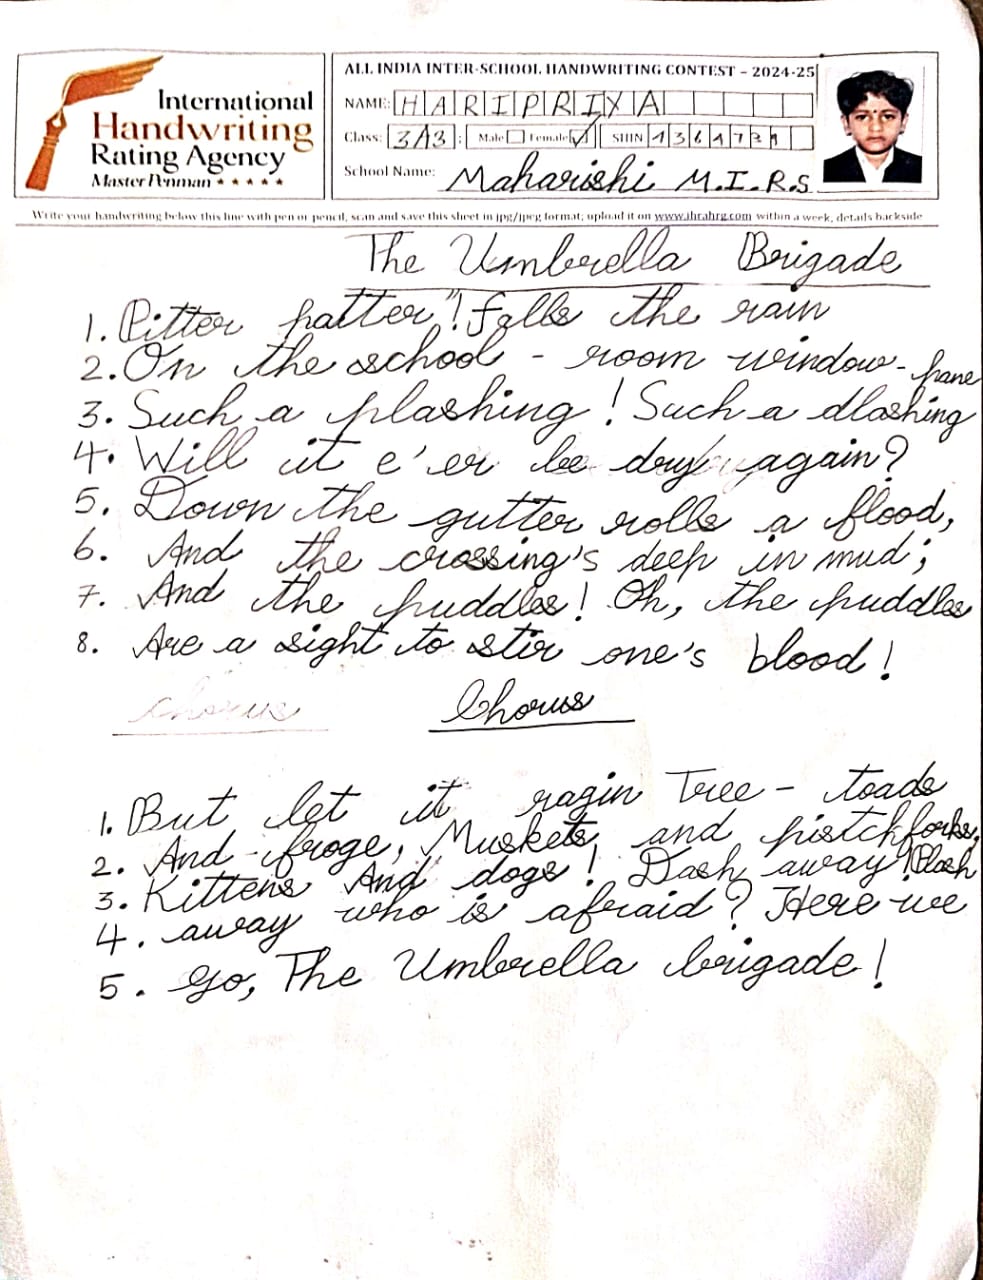 International
Handwriting
Rating Agency
Master Penman
ALL INDIA INTER-SCHOOL HANDWRITING CONTEST – 2024-25
NAME: HARIPRIYA
Class: 3/A3 : Male Female ✓ SHN 1364729
School Name: Maharishi M.I.R.S
Write your handwriting below this line with pen or pencil, scan and save this sheet in jpg/jpeg format; upload it on www.ihrahrg.com within a week, details backside
The Umbrella Brigade
1. Pitter patter"! falls the rain
2. On the school - room window - pane
3. Such a plashing! Such a dlashing
4. Will it e'er be dry again?
5. Down the gutter rolls a flood,
6. And the crossing's deep in mud;
7. And the puddles! Oh, the puddles
8. Are a sight to stir one's blood!
chorus Chorus
1. But let it ragin Tree - toads
2. And froge, Muskets and pistchforks,
3. Kittens And dogs! Dash away! Plash
4. away who is afraid? Here we
5. go, The Umbrella brigade!